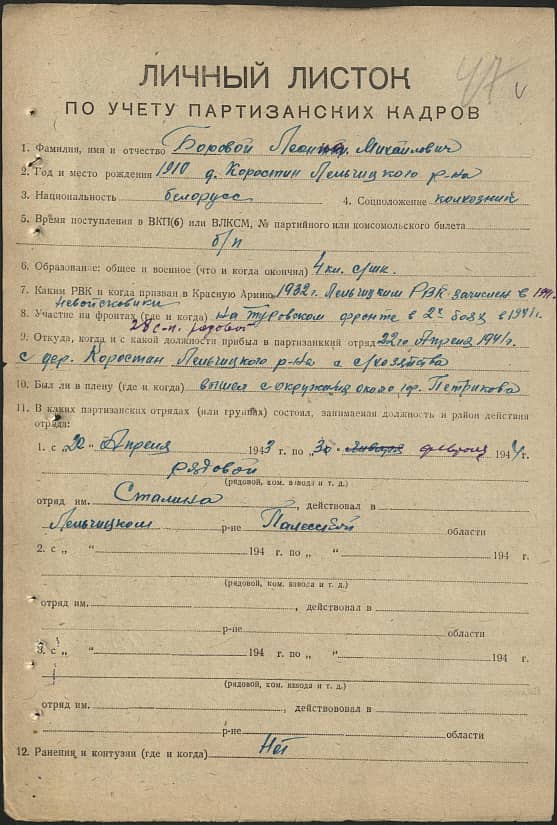 47 v
ЛИЧНЫЙ ЛИСТОК
ПО УЧЕТУ ПАРТИЗАНСКИХ КАДРОВ
1. Фамилия, имя и отчество Боровой Михайлович
2. Год и место рождения 1910 д. Коростин Лельчицкого р-на
3. Национальность белорусс 4. Соцположение колхозник
5. Время поступления в ВКП(б) или ВЛКСМ, № партийного или комсомольского билета
б/п
6. Образование: общее и военное (что и когда окончил) 4 кл. с/шк.
7. Каким РВК и когда призван в Красную Армию 1932 г. Лельчицким РВК зачислен в
невойсковики
8. Участие на фронтах (где и когда) на Туровском фронте в 2х боях в 1941г.
28 с.п. рядовой
9. Откуда, когда и с какой должности прибыл в партизанский отряд 22го Апреля 1941г.
с дер. Коростан Лельчицкого р-на с с/хозяйства
10. Был ли в плену (где и когда) вышел с окружения около гор. Петрикова
11. В каких партизанских отрядах (или группах) состоял, занимаемая должность и район действия
отряда:
1. с „22 “ Апреля 1943 г. по „30 “ января февраля 1944г.
рядовой
(рядовой, ком. взвода и т. д.)
отряд им. Сталина, действовал в
Лельчицком р-не Полесской области
2. с „ “ 194 г. по „ “ 194 г.
(рядовой, ком. взвода и т. д.)
отряд им. , действовал в
р-не области
3. с „ “ 194 г. по „ “ 194 г.
(рядовой, ком. взвода и т. д.)
отряд им. , действововал в
р-не области
12. Ранения и контузии (где и когда) Нет